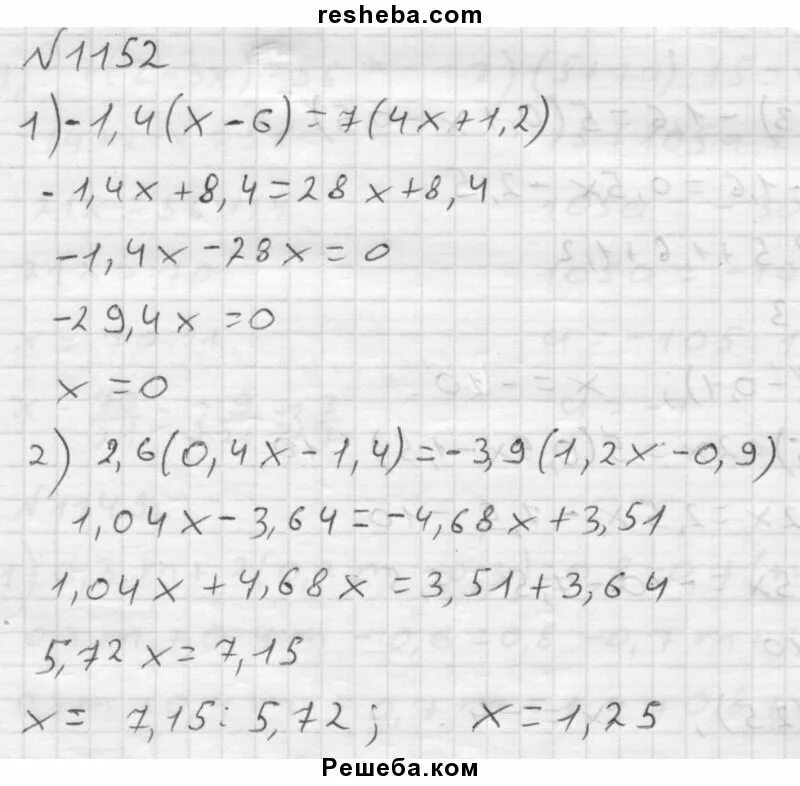 resheba.com
№1152
1) -1,4(x-6)=7(4x+1,2)
-1,4x+8,4=28x+8,4
-1,4x-28x=0
-29,4x=0
x=0
2) 2,6(0,4x-1,4)=-3,9(1,2x-0,9)
1,04x-3,64=-4,68x+3,51
1,04x+4,68x=3,51+3,64
5,72x=7,15
x= 7,15:5,72; x=1,25
Решеба.ком